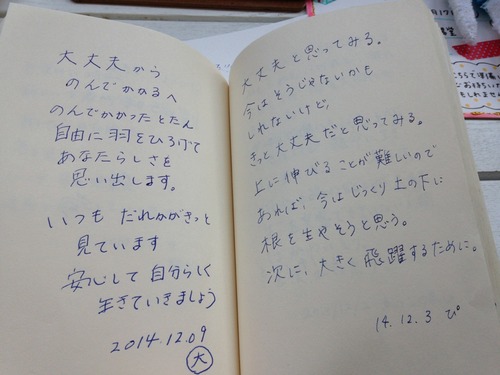 大丈夫から
のんでかかるへ
のんでかかったとたん
自由に羽をひろげて
あなたらしさを
思い出します。
いつも だれかがきっと
見ています
安心して 自分らしく
生きていきましょう
2014.12.09
大
大丈夫と思ってみる。
今はそうじゃないかも
しれないけど、
きっと大丈夫だと思ってみる。
上に伸びることが難しいので
あれば、今はじっくり土の下に
根を生やそうと思う。
次に、大きく飛躍するために。
14.12.3 ぴ